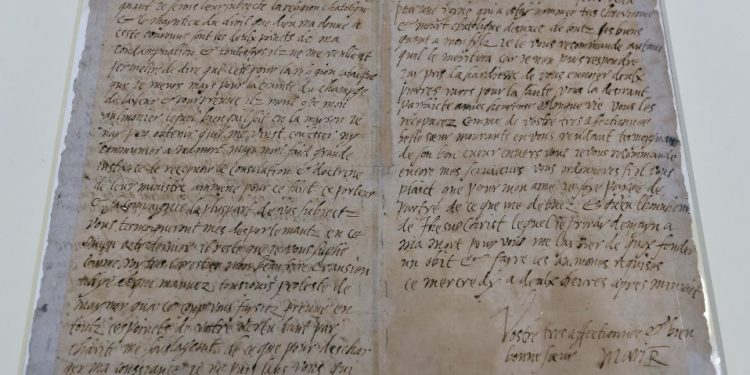 quant je serois leur subjecte la religion chatolique
& le mayntien du droit que dieu ma donne a
ceste couronne sont les deulx points de ma
condampnation & toutesfoys ilz ne me veullent
permetre de dire que cest pour la religion catolique
que je meurs mays pour la crainte du champge
de la leur & pour preuve ilz mont oste mon
aulmonier lequel bien quil soit en la mayson je
nay peu obtenir quil me vinst confesser ny
communier a ma mort mays mont faict grande
instance de recepvoir la consolation & doctrine
de leur ministre ammene pour ce faict ce porteur
& sa compaignie la pluspart de vos subjectz
vous tesmoigneront mes desportemantz en ce
mien acte dernier il reste que je vous suplie
comme roy tres chrestien mon beaufrere & ansien
allye & qui mavvez tousiours proteste de
maymer qua ce coup vous faysiez preuve en
toutz ces points de vostre vertu tant par
charite me souslageant de ce que pour deschar
ger ma conssiance je ne puis sans vous qui
pour une royne qui a este nommee tres chrestienne
& meurt chatolique desnuee de toutz ses biens
quant a mon filz je le vous recommande autant
quil le meritera car je nen puis respondre
Jay pris la hardiesse de vous envoier deulx
pierres rares pour la sante vous la desirant
parfaicte avvec heureuse & longue vie vous les
recepvrez comme de vostre tres affectionnee
belle soeur mourante en vous rendant tesmoygnasge
de son bon cueur envers vous je vous recommande
encore mes serviteurs vous ordonnerez si il vous
plaict que pour mon ame je soye payee de
partye de ce que me debvez & quen lhonneur
de Jhesus Christ lequel je priray demayn a
ma mort pour vous me laisser de quoy fonder
un obit & fayre les aumosnes requises
ce mercredy a deulx heures apres minuit
Vostre tres affectionnee & bien
bonne soeur Mari R